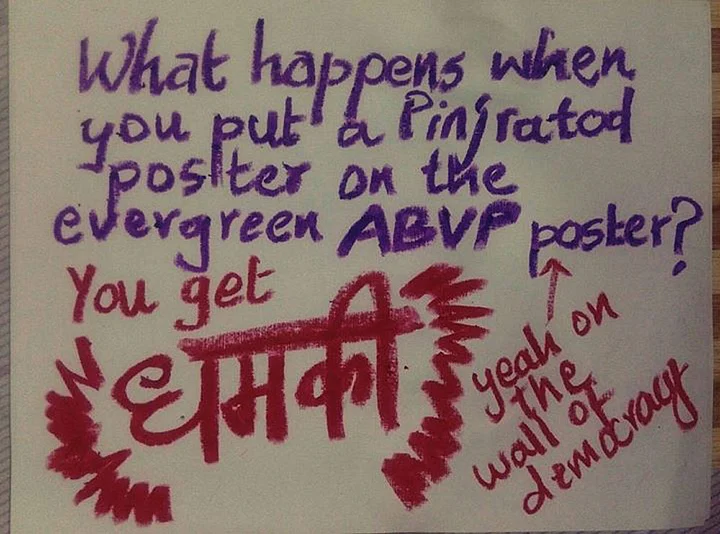 What happens when
you put a Pinjratod
poster on the
evergreen ABVP poster?
You get
धमकी
yeah on
the
wall of
democracy